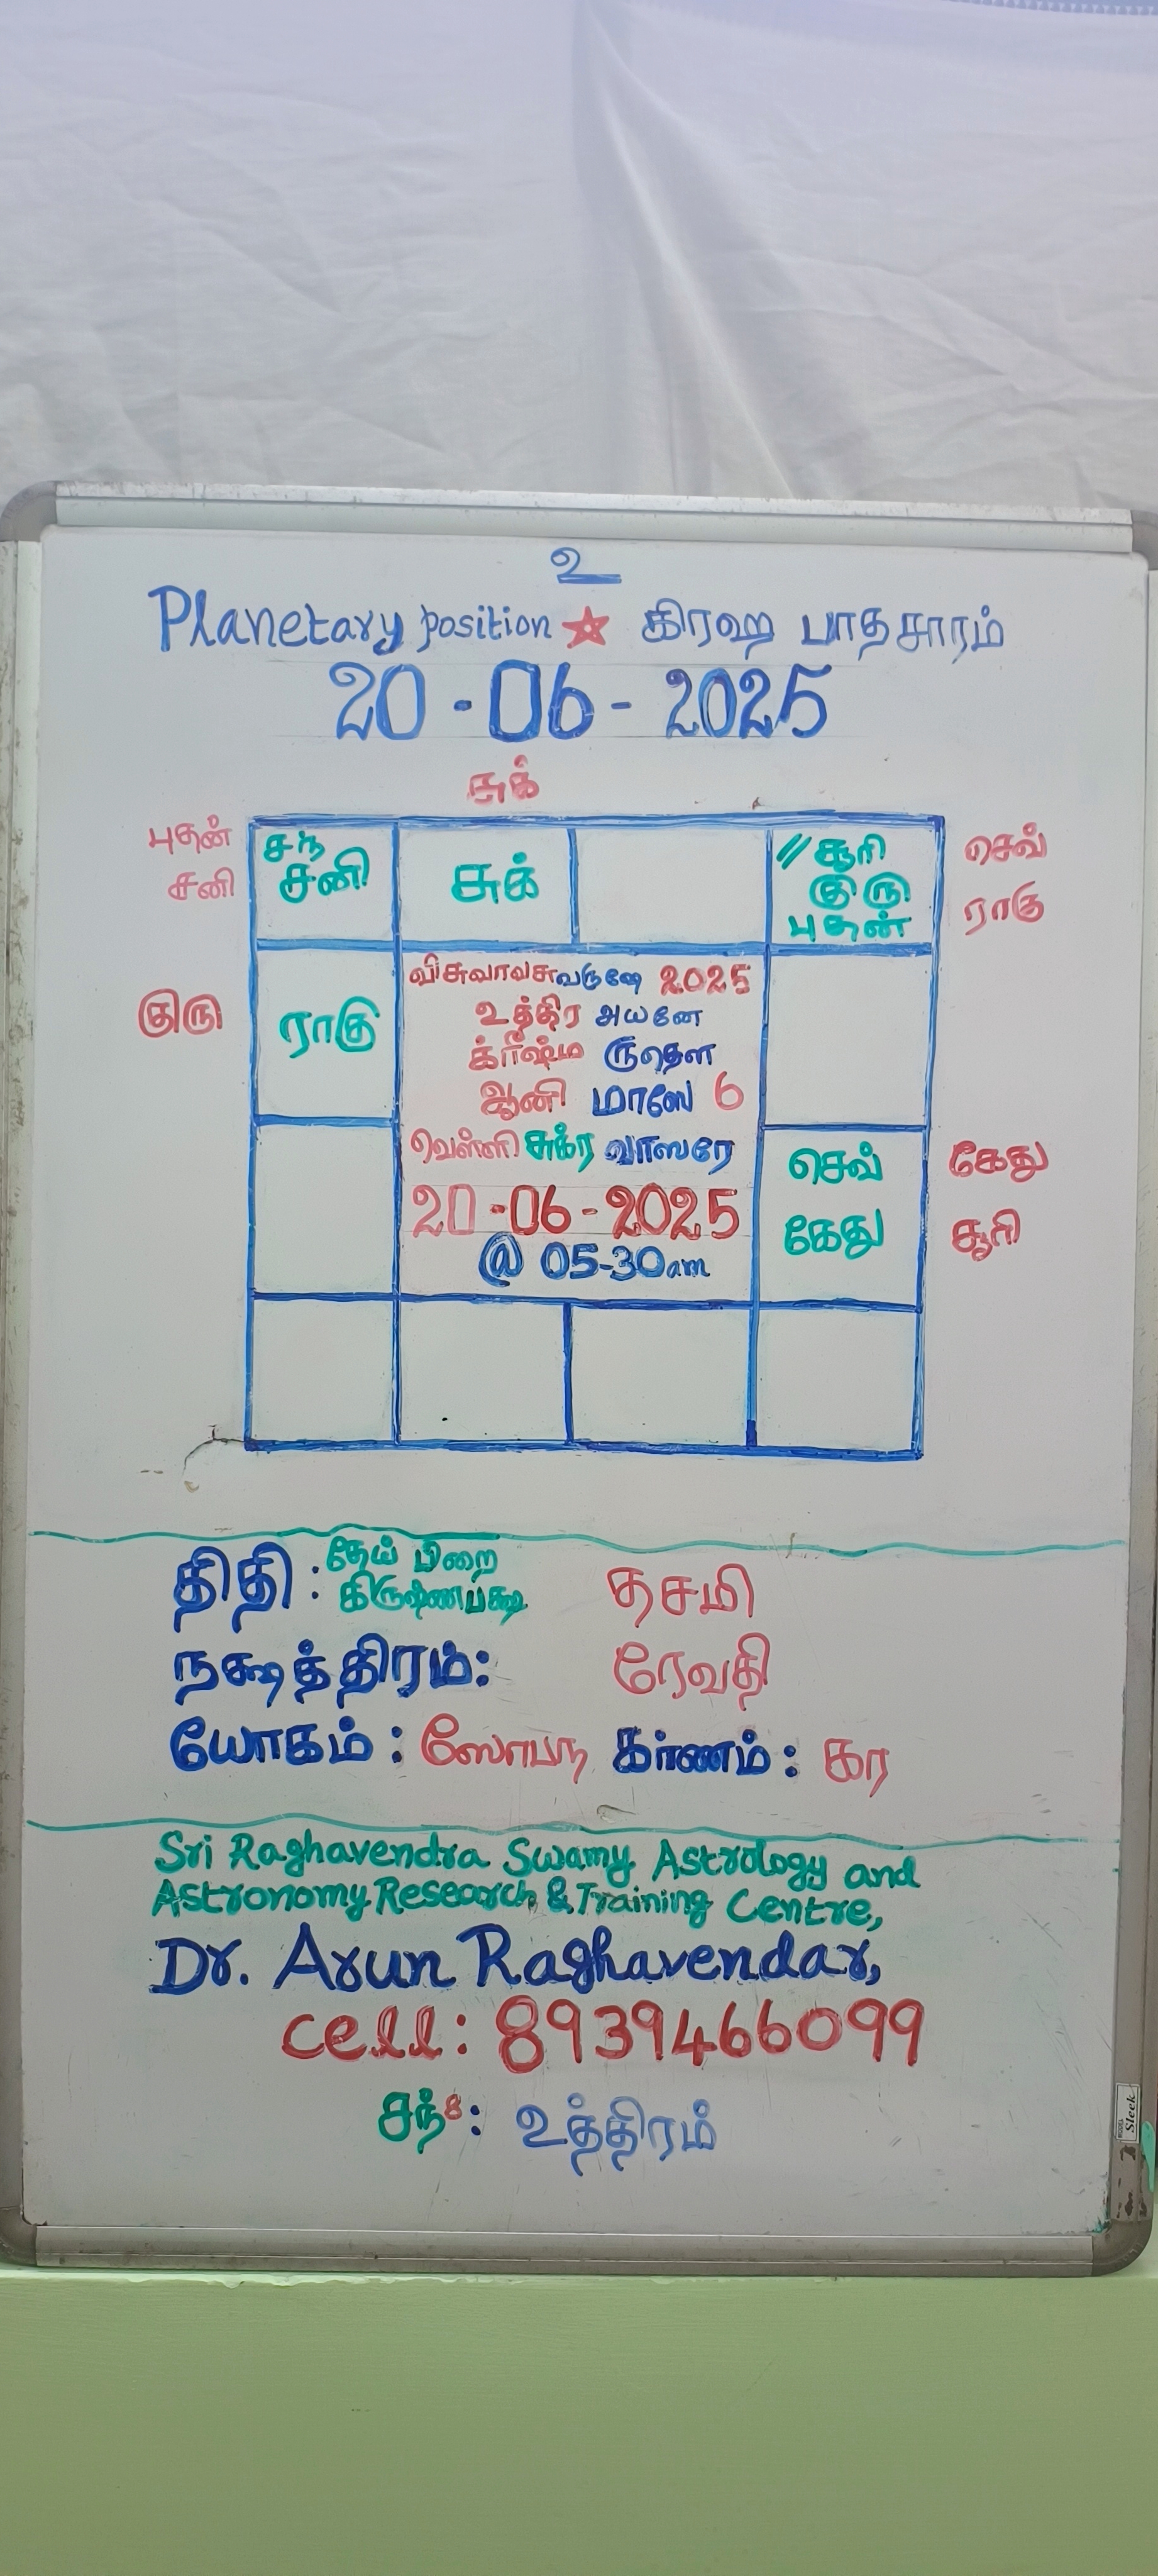 உ
Planetary position ★ கிரஹ பாதசாரம்
20-06-2025
சுக்
புதன்
சனி
சந்
சனி
சுக்
// சூரி
குரு
புதன்
செவ்
ராகு
குரு
ராகு
விசுவாவசு வருஷே 2025
உத்திர அயனே
க்ரீஷ்ம ருதௌ
ஆனி மாஸே 6
வெள்ளி சுக்ர வாஸரே
20-06-2025
@ 05-30am
செவ்
கேது
கேது
சூரி
திதி : தேய் பிறை
கிருஷ்ணபக்ஷ தசமி
நக்ஷத்திரம்: ரேவதி
யோகம் : ஸோபந கர்ணம் : கர
Sri Raghavendra Swamy Astrology and
Astronomy Research & Training Centre,
Dr. Arun Raghavendar,
cell: 8939466099
சந்8: உத்திரம்
Sleek